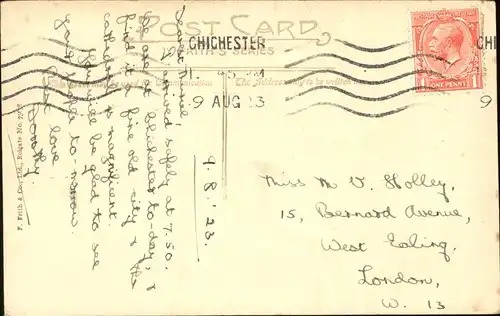 POST CARD
FRITH'S SERIES
CHICHESTER
9 AUG 23
ONE PENNY
The Address only to be written
F. Frith & Co., Ltd., Reigate No.
9. 8. '23.
Dearest Minnie!
I arrived safely at 7.50.
We are at Chichester to-day, &
find it a fine old city & the
cathedral is magnificent.
You will be glad to see
to-morrow.
Fond love
Dorothy
Miss M. V. Holley,
15, Bernard Avenue,
West Ealing,
London,
W. 13